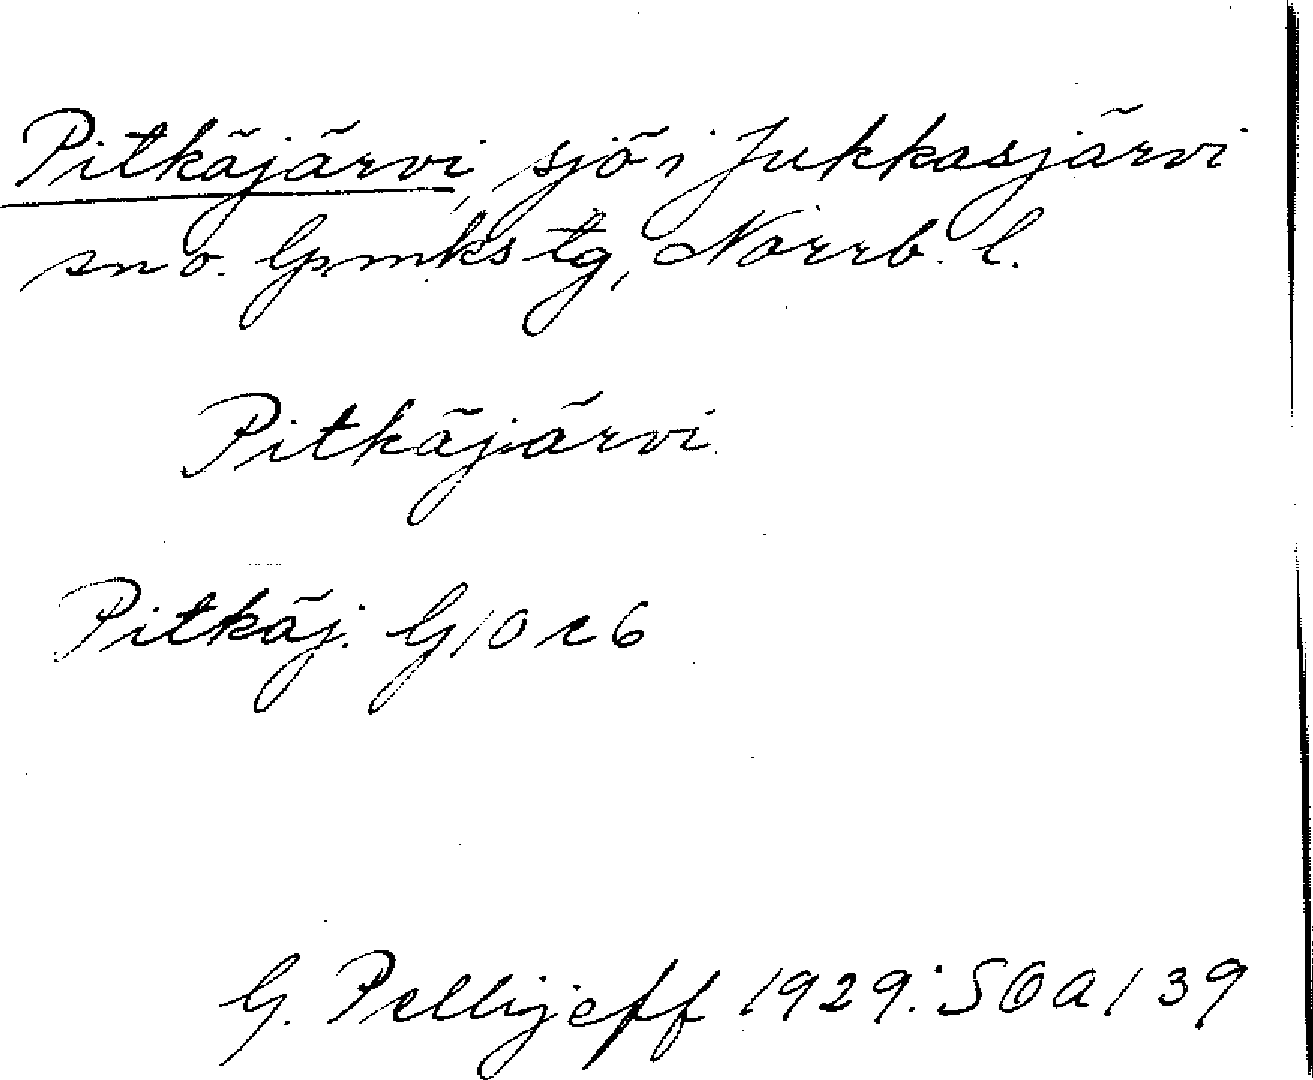 Pitkäjärvi, sjö i Jukkasjärvi
sn o. Gr.m.ks tg, Norrb. l.
Pitkäjärvi
Pitkäj. G10 c6
G. Pellijeff 1929: SOA 139